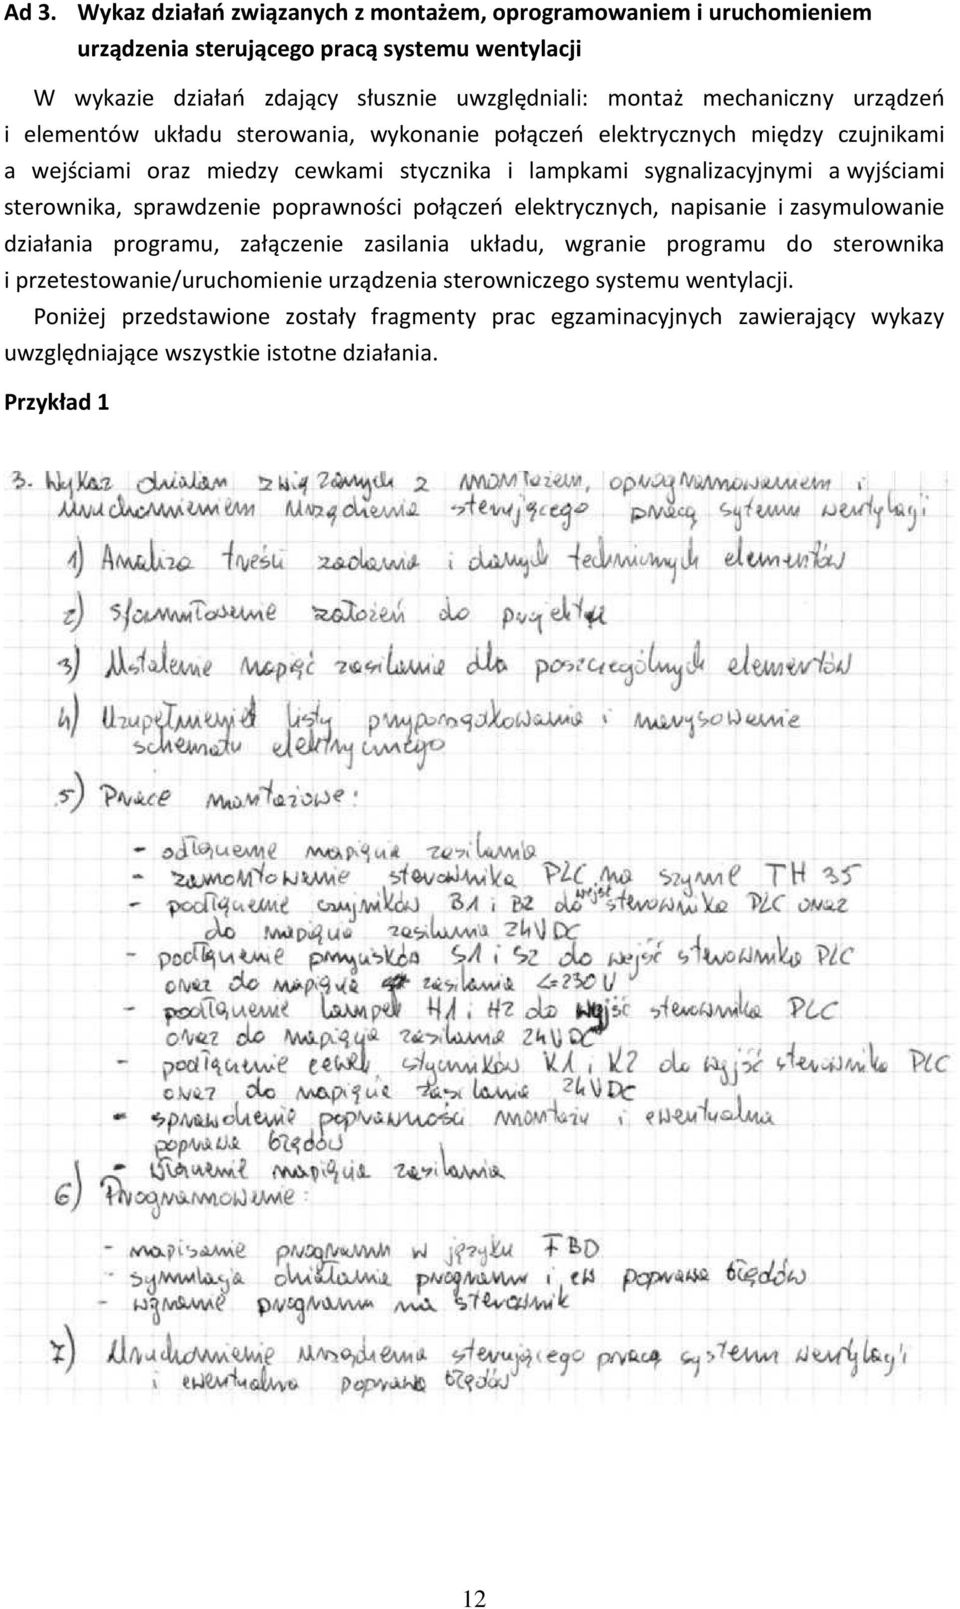 Ad 3. Wykaz działań związanych z montażem, oprogramowaniem i uruchomieniem
urządzenia sterującego pracą systemu wentylacji
W wykazie działań zdający słusznie uwzględniali: montaż mechaniczny urządzeń
i elementów układu sterowania, wykonanie połączeń elektrycznych między czujnikami
a wejściami oraz miedzy cewkami stycznika i lampkami sygnalizacyjnymi a wyjściami
sterownika, sprawdzenie poprawności połączeń elektrycznych, napisanie i zasymulowanie
działania programu, załączenie zasilania układu, wgranie programu do sterownika
i przetestowanie/uruchomienie urządzenia sterowniczego systemu wentylacji.
Poniżej przedstawione zostały fragmenty prac egzaminacyjnych zawierający wykazy
uwzględniające wszystkie istotne działania.
Przykład 1
3. Wykaz działań związanych z montażem, oprogramowaniem i
uruchomieniem urządzenia sterującego pracą sytemu wentylacji
1) Analiza treści zadania i danych technicznych elementów
2) Sformułowanie założeń do projektu
3) Ustalenie napięć zasilania dla poszczególnych elementów
4) Uzupełnienie listy przyporządkowania i narysowanie
schematu elektrycznego
5) Prace montażowe:
- odłączenie napięcia zasilania
- zamontowanie sterownika PLC na szynie TH 35
- podłączenie czujników B1 i B2 do wejść sterownika PLC oraz
do napięcia zasilania 24V DC
- podłączenie przycisków S1 i S2 do wejść sterownika PLC
oraz do napięcia zasilania L=230V
- podłączenie lampek H1 i H2 do wyjść sterownika PLC
oraz do napięcia zasilania 24V DC
- podłączenie cewek styczników K1 i K2 do wyjść sterownika PLC
oraz do napięcia zasilania 24V DC
- sprawdzenie poprawności montażu i ewentualna
poprawa błędów
- włączenie napięcia zasilania
6) Programowanie:
- napisanie programu w języku FBD
- symulacja działania programu i ew poprawa błędów
- wgranie programu na sterownik
7) Uruchomienie urządzenia sterującego pracą systemu wentylacji
i ewentualna poprawa błędów
12